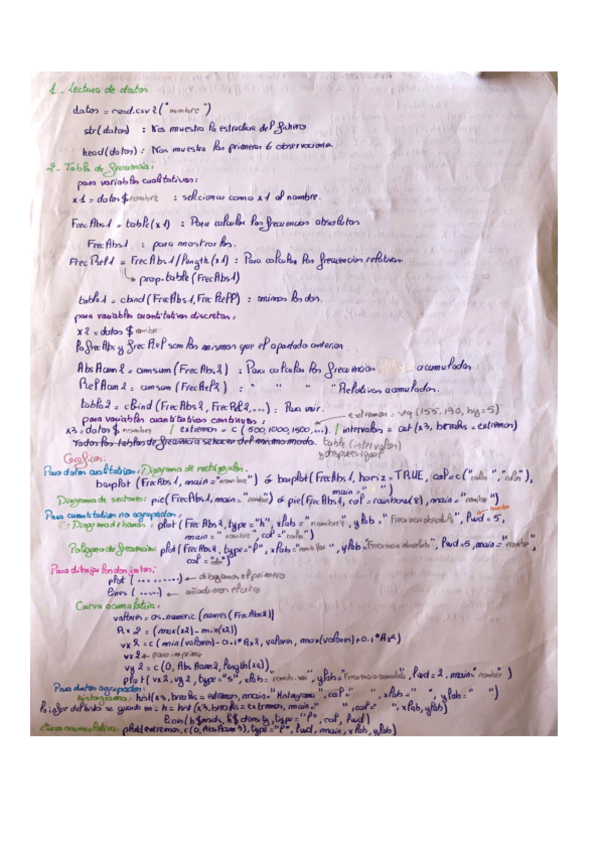 1. Lectura de datos
datos = read.csv2("nombre")
str(datos) : Nos muestra la estructura del fichero
head(datos) : Nos muestra las primeras 6 observaciones.
2- Tabla de frecuencia:
para variables cualitativas:
x1 = datos$nombre : selecionar como x1 al nombre.
FrecAbs1 = table(x1) : Para calcular las frecuencias absolutas
FrecAbs1 : para mostrarlas.
FrecRel1 = FrecAbs1/length(x1) : Para calcular las frecuencias relativas
↳ prop.table(FrecAbs1)
tabla1 = cbind(FrecAbs1, FrecRel1) : unimos las dos.
para variables cuantitativas discretas:
x2 = datos$nombre
la frecAbs y frecRel son las mismas que el apartado anterior
AbsAcum2 = cumsum(FrecAbs2) : Para calcular las frecuencias acumuladas
RelAcum2 = cumsum(FrecRel2) : " " " Relativas acumuladas.
tabla2 = cbind(FrecAbs2, FrecRel2,...) : Para unir.
para variables cuantitativas continuas: extremos = seq(155,190, by=5)
x3 = datos$nombre / extremos = c(500,1000,1500,...) / intervalos = cut(x3, breaks = extremos)
Todas las tablas de frecuencia se hacen del mismo modo. table(intervalos)
y despues igual
Graficos:
Para datos cualitativos: Diagrama de rectángulos.
barplot(FrecAbs1, main="nombre") ó barplot(FrecAbs1, horiz=TRUE, col=c("color","color"),
main=" ")
Diagrama de sectores: pie(FrecAbs1, main="nombre") ó pie(FrecAbs1, col=rainbow(8), main="nombre")
Para cuantitativas no agrupadas:
Diagrama de barras: plot(FrecAbs2, type="h", xlab="nombre", ylab="Frecuencia absoluta", lwd=5,
main="nombre", col="color")
Poligono de frecuencias: plot(FrecAbs2, type="l", xlab="nombre", ylab="Frecuencia absoluta", lwd=5, main="nombre",
col="color")
Para dibujar los dos juntos:
plot(.........) ← dibujamos el primero
lines(......) ← añadimos el otro
Curva acumulativa:
valores = as.numeric(names(FrecAbs2))
Rx2 = (max(x2)-min(x2))
vx2 = c(min(valores)-0.1*Rx2, valores, max(valores)+0.1*Rx2)
vx2 ← para imprimir
vy2 = c(0, AbsAcum2, length(x2))
plot(vx2, vy2, type="s", xlab="nombre var", ylab="Frecuencia acumulada", lwd=2, main="nombre")
Para datos agrupados:
histograma: hist(x3, breaks=extremos, main="Histograma", col=" ", xlab=" ", ylab=" ")
h = hist(x3, breaks=extremos, main=" ", col=" ", xlab, ylab)
lines(h$mids, h$density, type="l", col, lwd)
Curva acumulativa: plot(extremos, c(0, AbsAcum3), type="l", lwd, main, xlab, ylab)